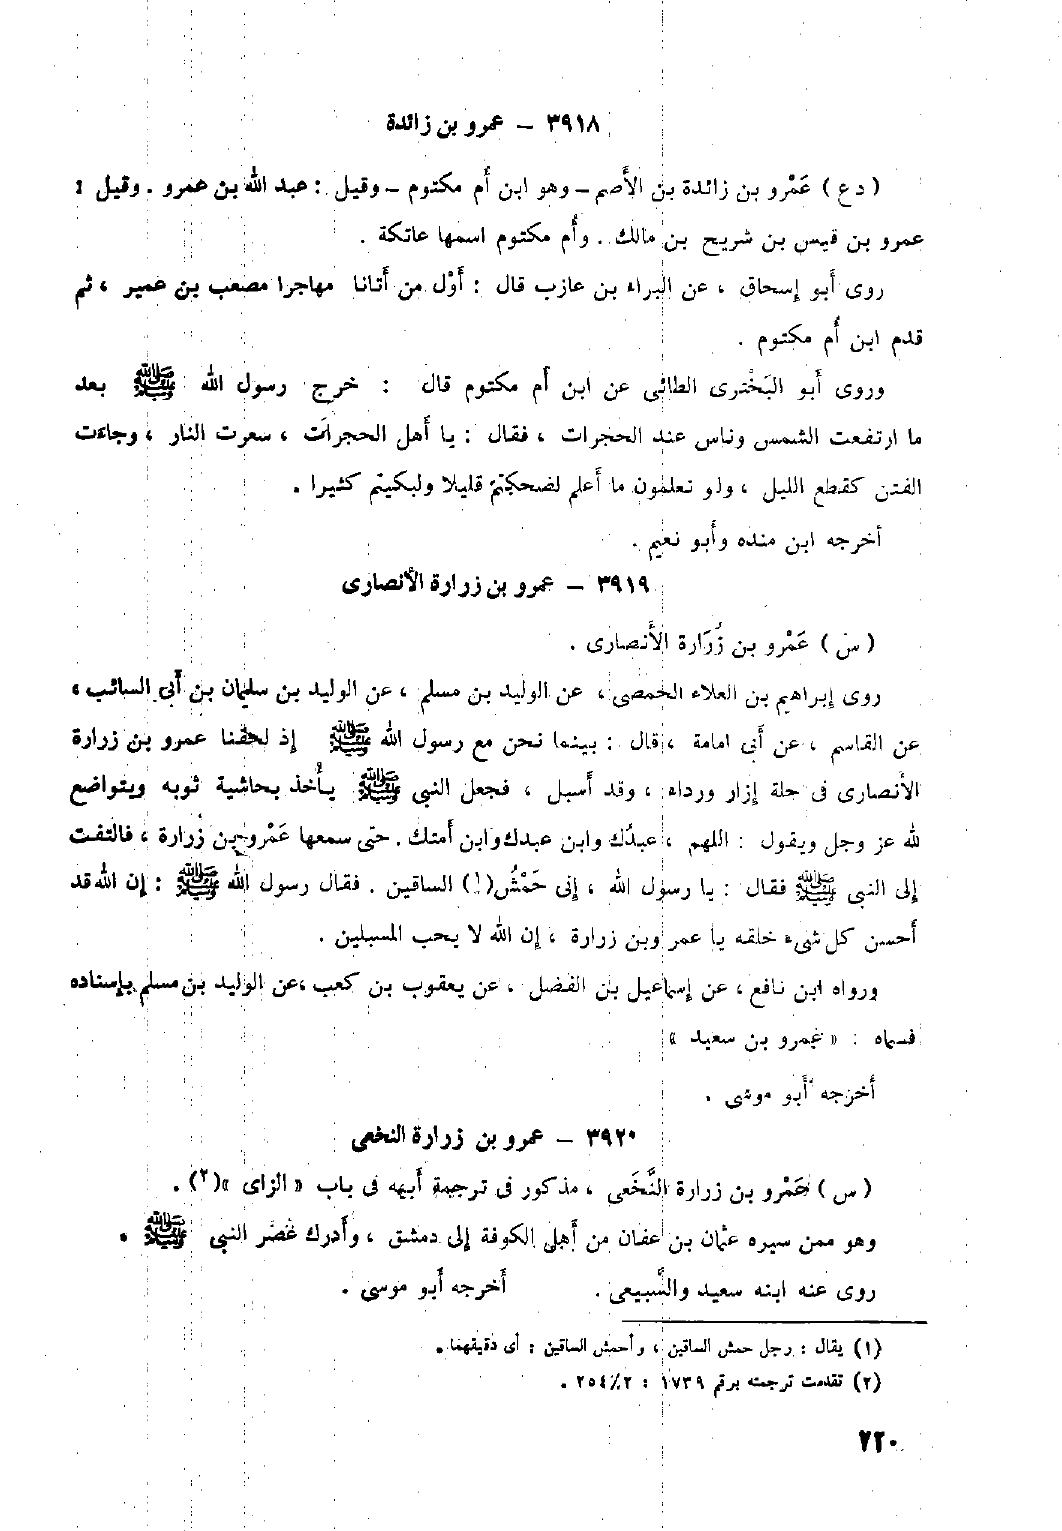 ٣٩١٨ – عمرو بن زائدة
( د ع ) عَمْرو بن زائدة بن الأَصم – وهو ابن أُم مكتوم – وقيل : عبد الله بن عمرو . وقيل :
عمرو بن قيس بن شريح بن مالك . وأُم مكتوم اسمها عاتكة .
روى أَبو إسحاق ، عن البراء بن عازب قال : أَوّل من أَتانا مهاجرا مصعب بن عمير ، ثم
قدم ابن أُم مكتوم .
وروى أَبو البَخْترى الطائى عن ابن أُم مكتوم قال : خرج رسول الله ﷺ بعد
ما ارتفعت الشمس وناس عند الحجرات ، فقال : يا أَهل الحجرات ، سعرت النار ، وجاءَت
الفتن كقطع الليل ، ولو تعلمون ما أَعلم لضحكتم قليلا ولبكيتم كثيرا .
أخرجه ابن منده وأَبو نعيم .
٣٩١٩ – عمرو بن زرارة الأنصارى
( س ) عَمْرو بن زُرَارة الأَنصارى .
روى إبراهيم بن العلاء الحمصى ، عن الوليد بن مسلم ، عن الوليد بن سليمان بن أَبى السائب ،
عن القاسم ، عن أَبى امامة ، قال : بينما نحن مع رسول الله ﷺ إذ لحقنا عمرو بن زرارة
الأَنصارى فى حلة إزار ورداء ، وقد أَسبل ، فجعل النبى ﷺ يأْخذ بحاشية ثوبه ويتواضع
لله عز وجل ويقول : اللهم ، عبدُك وابن عبدك وابن أَمتك . حتى سمعها عَمْرو بن زُرارة ، فالتفت
إلى النبى ﷺ فقال : يا رسول الله ، إنى حَمْشُ (١) الساقين . فقال رسول الله ﷺ : إن الله قد
أَحسن كل شىء خلقه يا عمرو بن زرارة ، إن الله لا يحب المسبلين .
ورواه ابن نافع ، عن إسماعيل بن الفضل ، عن يعقوب بن كعب ، عن الوليد بن مسلم بإسناده
فسماه : « عمرو بن سعيد »
أَخرجه أَبو موسى .
٣٩٢٠ – عمرو بن زرارة النخعى
( س ) عَمْرو بن زرارة النَّخَعى ، مذكور فى ترجمة أَبيه فى باب « الزاى » (٢) .
وهو ممن سيره عثمان بن عفان من أَهل الكوفة إلى دمشق ، وأَدرك عَصْر النبى ﷺ .
روى عنه ابنه سعيد والسَّبيعى . أَخرجه أَبو موسى .
(١) يقال : رجل حمش الساقين ، وأحمش الساقين : أى دقيقهما .
(٢) تقدمت ترجمته برقم ١٧٣٩ : ٢/٢٥٤ .
٢٢٠